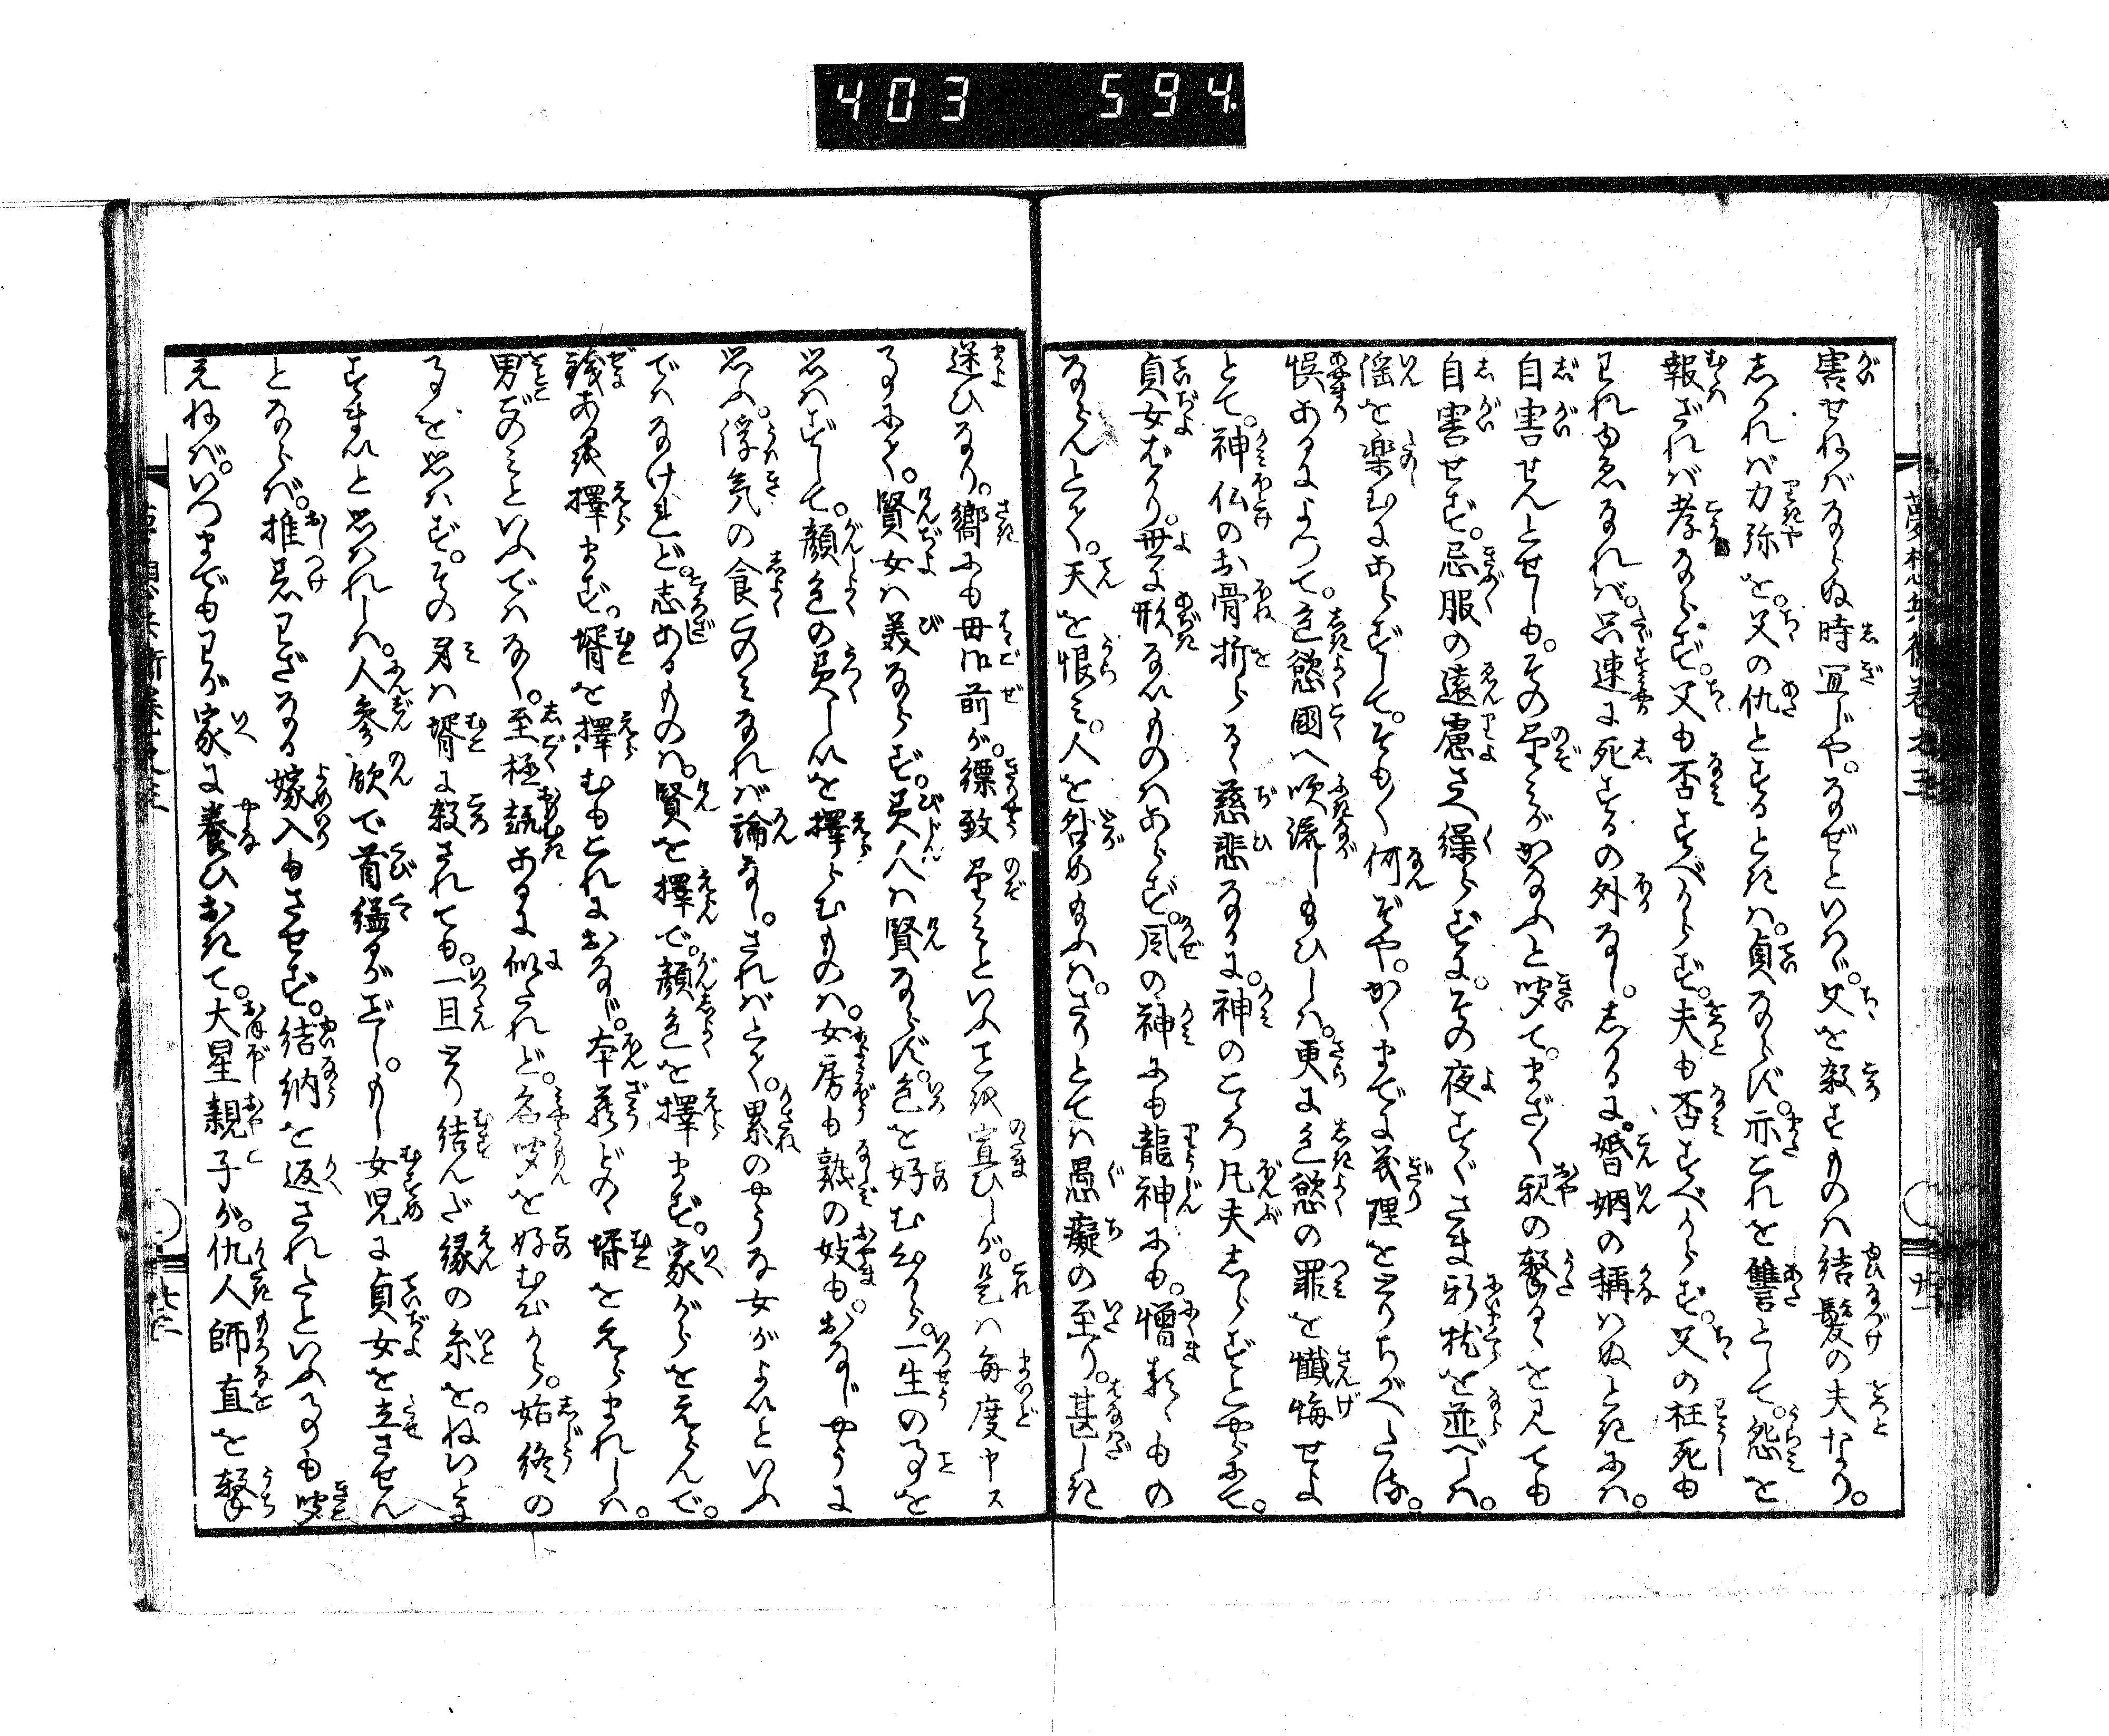 403 594
夢想兵衛巻之三
害せねばならぬ時宜じや。なぜといはゞ。父を殺すものは結髪の夫なり。
しかれば力弥を。父の仇とするときは。貞ならず。亦これを讐として。怨を
報ざれば孝ならず。父も否すべからず。夫も否すべからず。父の枉死も
われゆゑなれば。只速に死するの外なし。しかるに。婚姻の稱はぬときには。
自害せんとせしも。その望みがかなふと咬て。まざ〳〵親の撃るゝを見ても
自害せず。忌服の遠慮さへ繰らずに。その夜すぐさま新枕を並べしは。
婬を楽むにあらずして。そも〳〵何ぞや。かくまでに義理をとりちがへたる。
悞あるによつて。色慾國へ吹流しもひしは。更に色慾の罪を懺悔せよ
とて。神仏のお骨折らるゝ慈悲なるに。神のこゝろ凡夫しらずとやらにて。
貞女ばかり。世に形ないものはあらず。風の神にも龍神にも。憎まるゝもの
ならんとて。天を恨み。人を咎め給ふは。さりとては愚癡の至り。甚しき
迷ひなり。嚮にも母御前が。縹致望みといふことを宣ひしが。是は毎度申ス
事にて。賢女は美ならず。美人は賢ならず。色を好むから。一生の事を
思はずして。顔色の美しいを擇らむものは。女房も熟の妓も。おなじやうに
思ふ。浮気の食このみなれば論なし。さればとて。累のやうな女がよいといふ
ではなけれど。志あるものは。賢を擇で。顔色を擇まず。家がらをえらんで。
銭あるを擇まず。壻を擇むもこれにおなじ。本蔵どの壻をえらまれしは。
男ごのみといふではなく。至極義あるに似たれど。名聞を好むから。始終の
事を思はず。その身は壻に殺されても。一旦とり結んだ縁の糸を。ねいとま
すまいと思はれしは。人参飲で首縊るがごとし。もし女児に貞女を立させん
とならば。推忌わざなる嫁入もさせず。結納を返されたといふ事も咬
えねば。いつまでもわが家に養ひおきて。大星親子が。仇人師直を撃